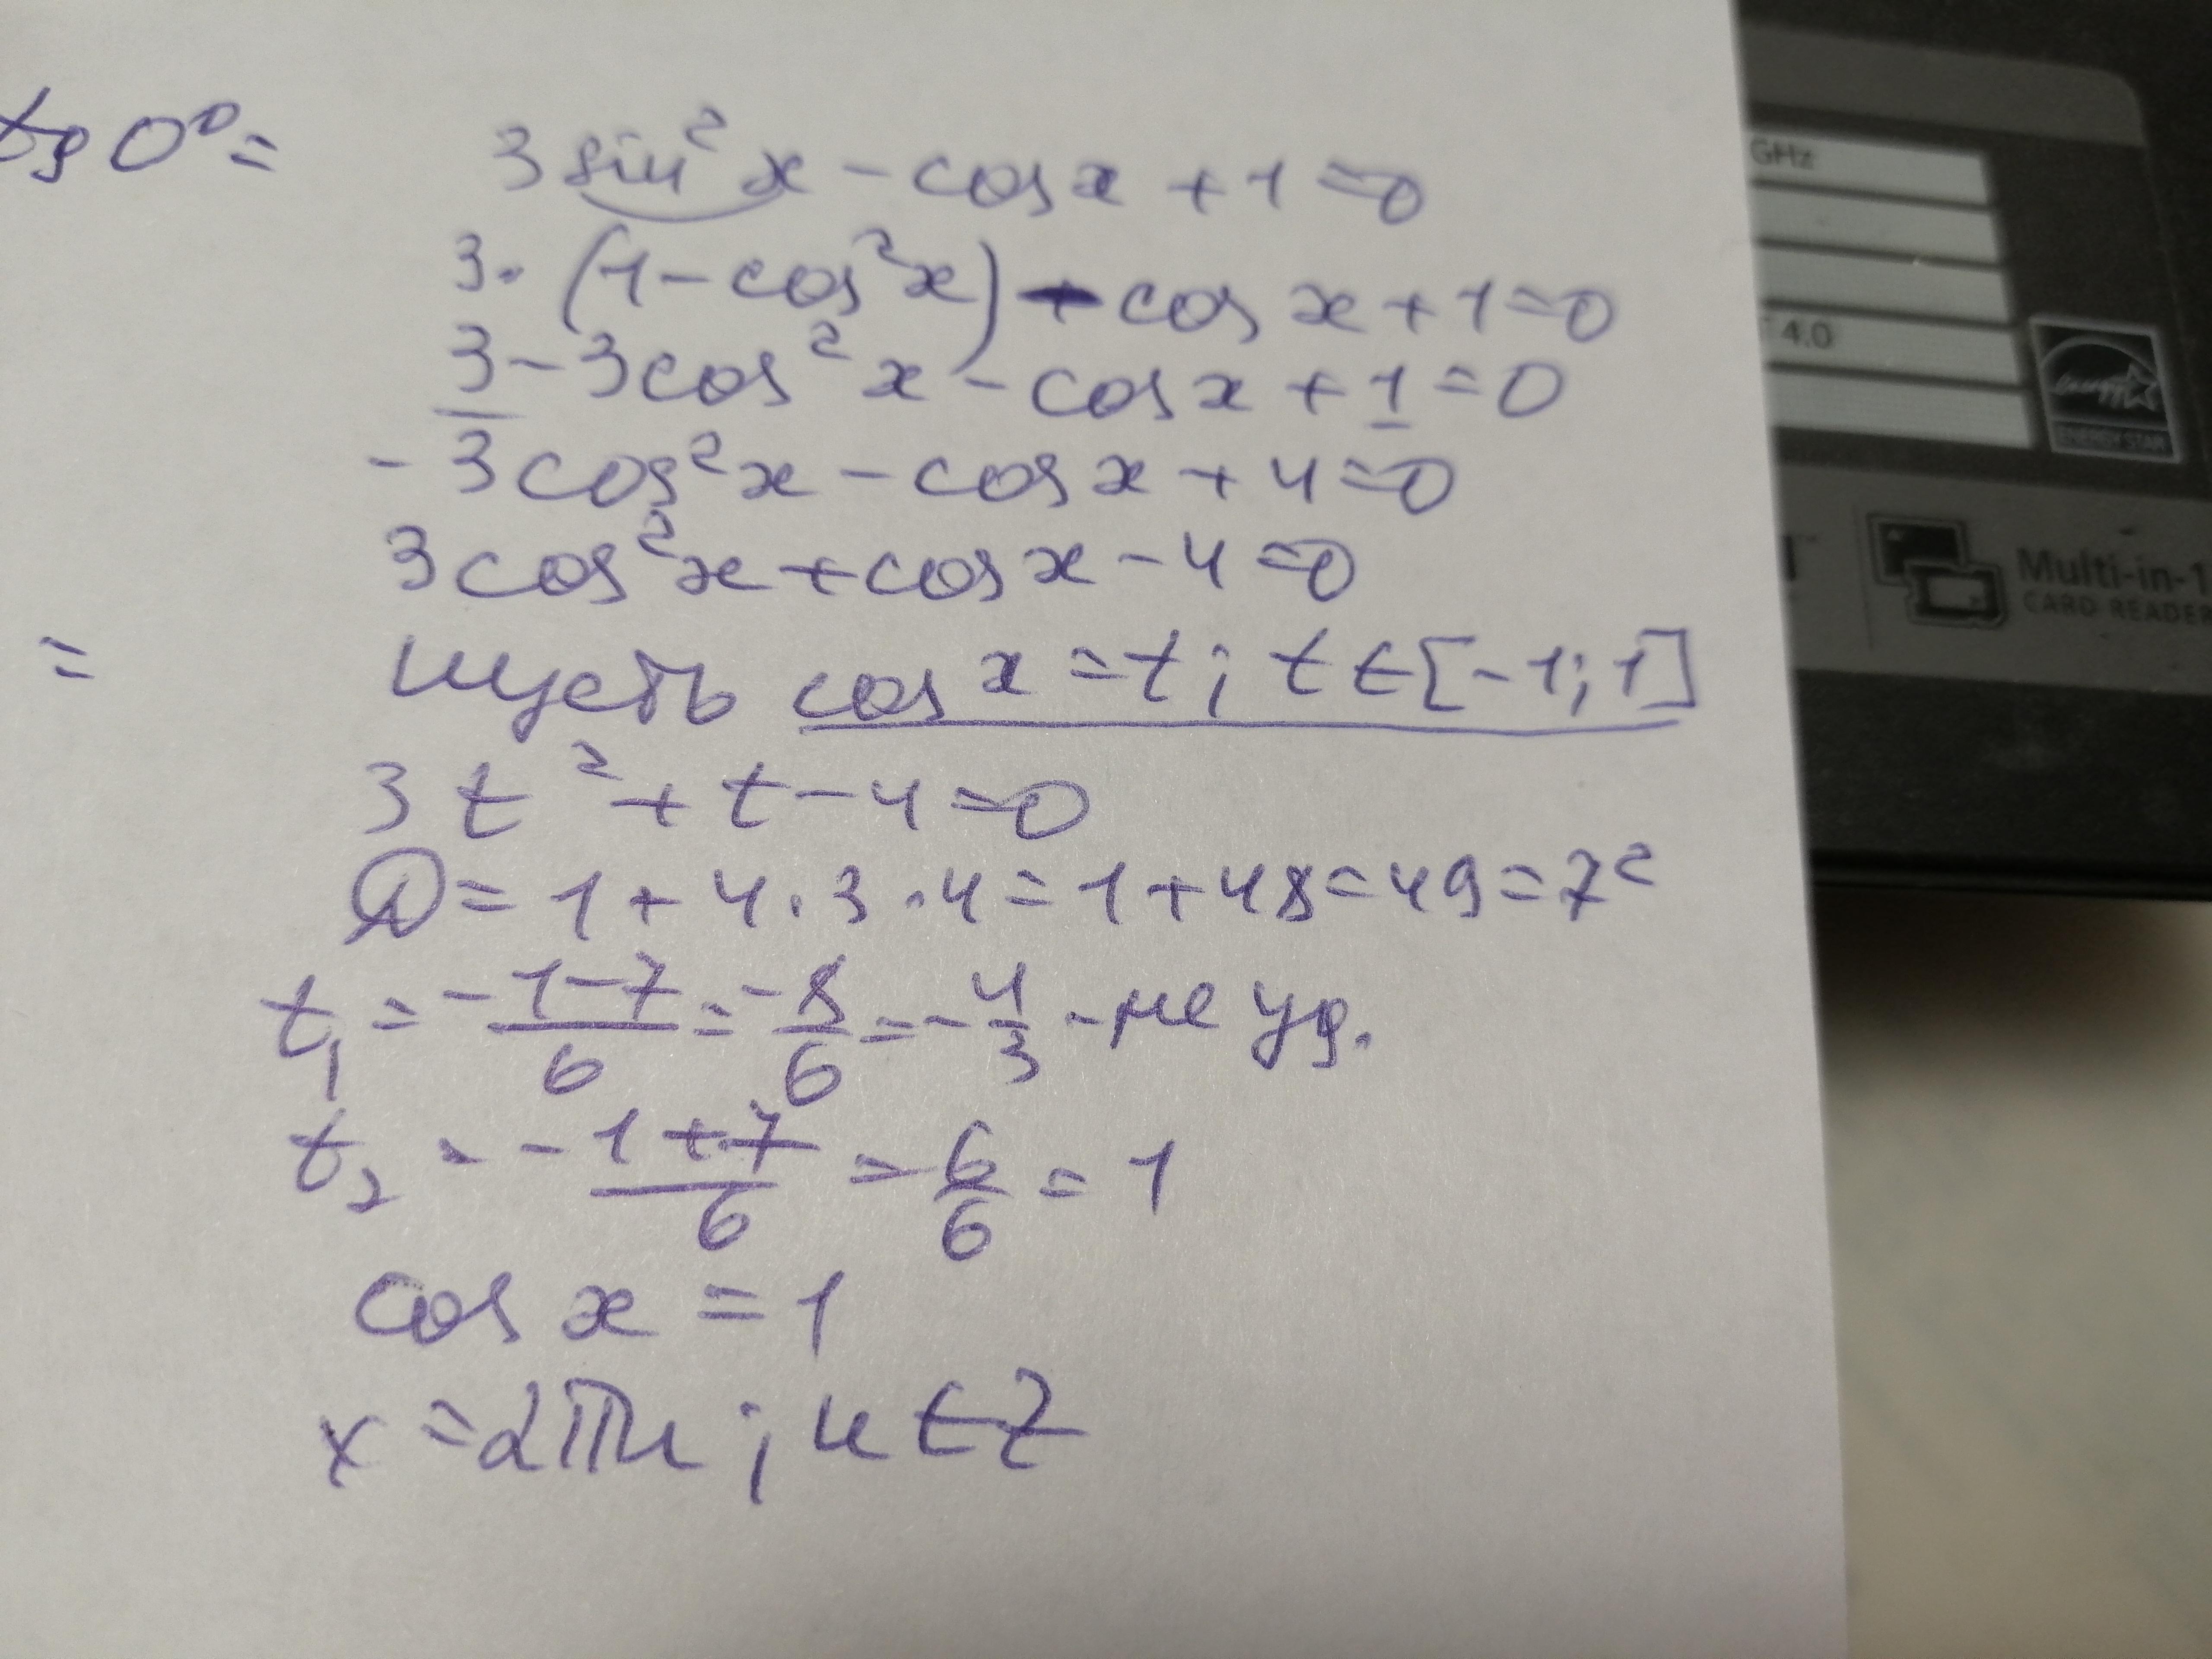 tg 0° =
3 sin² x - cos x + 1 = 0
3 · (1 - cos² x) - cos x + 1 = 0
3 - 3 cos² x - cos x + 1 = 0
- 3 cos² x - cos x + 4 = 0
3 cos² x + cos x - 4 = 0
=
пусть cos x = t ; t ∈ [-1; 1]
3 t² + t - 4 = 0
D = 1 + 4 · 3 · 4 = 1 + 48 = 49 = 7²
t₁ = (-1 - 7)/6 = -8/6 = -4/3 - не уд.
t₂ = (-1 + 7)/6 = 6/6 = 1
cos x = 1
x = 2πn ; n ∈ Z
GHz
4.0
ENERGY STAR
Multi-in-1
CARD READER